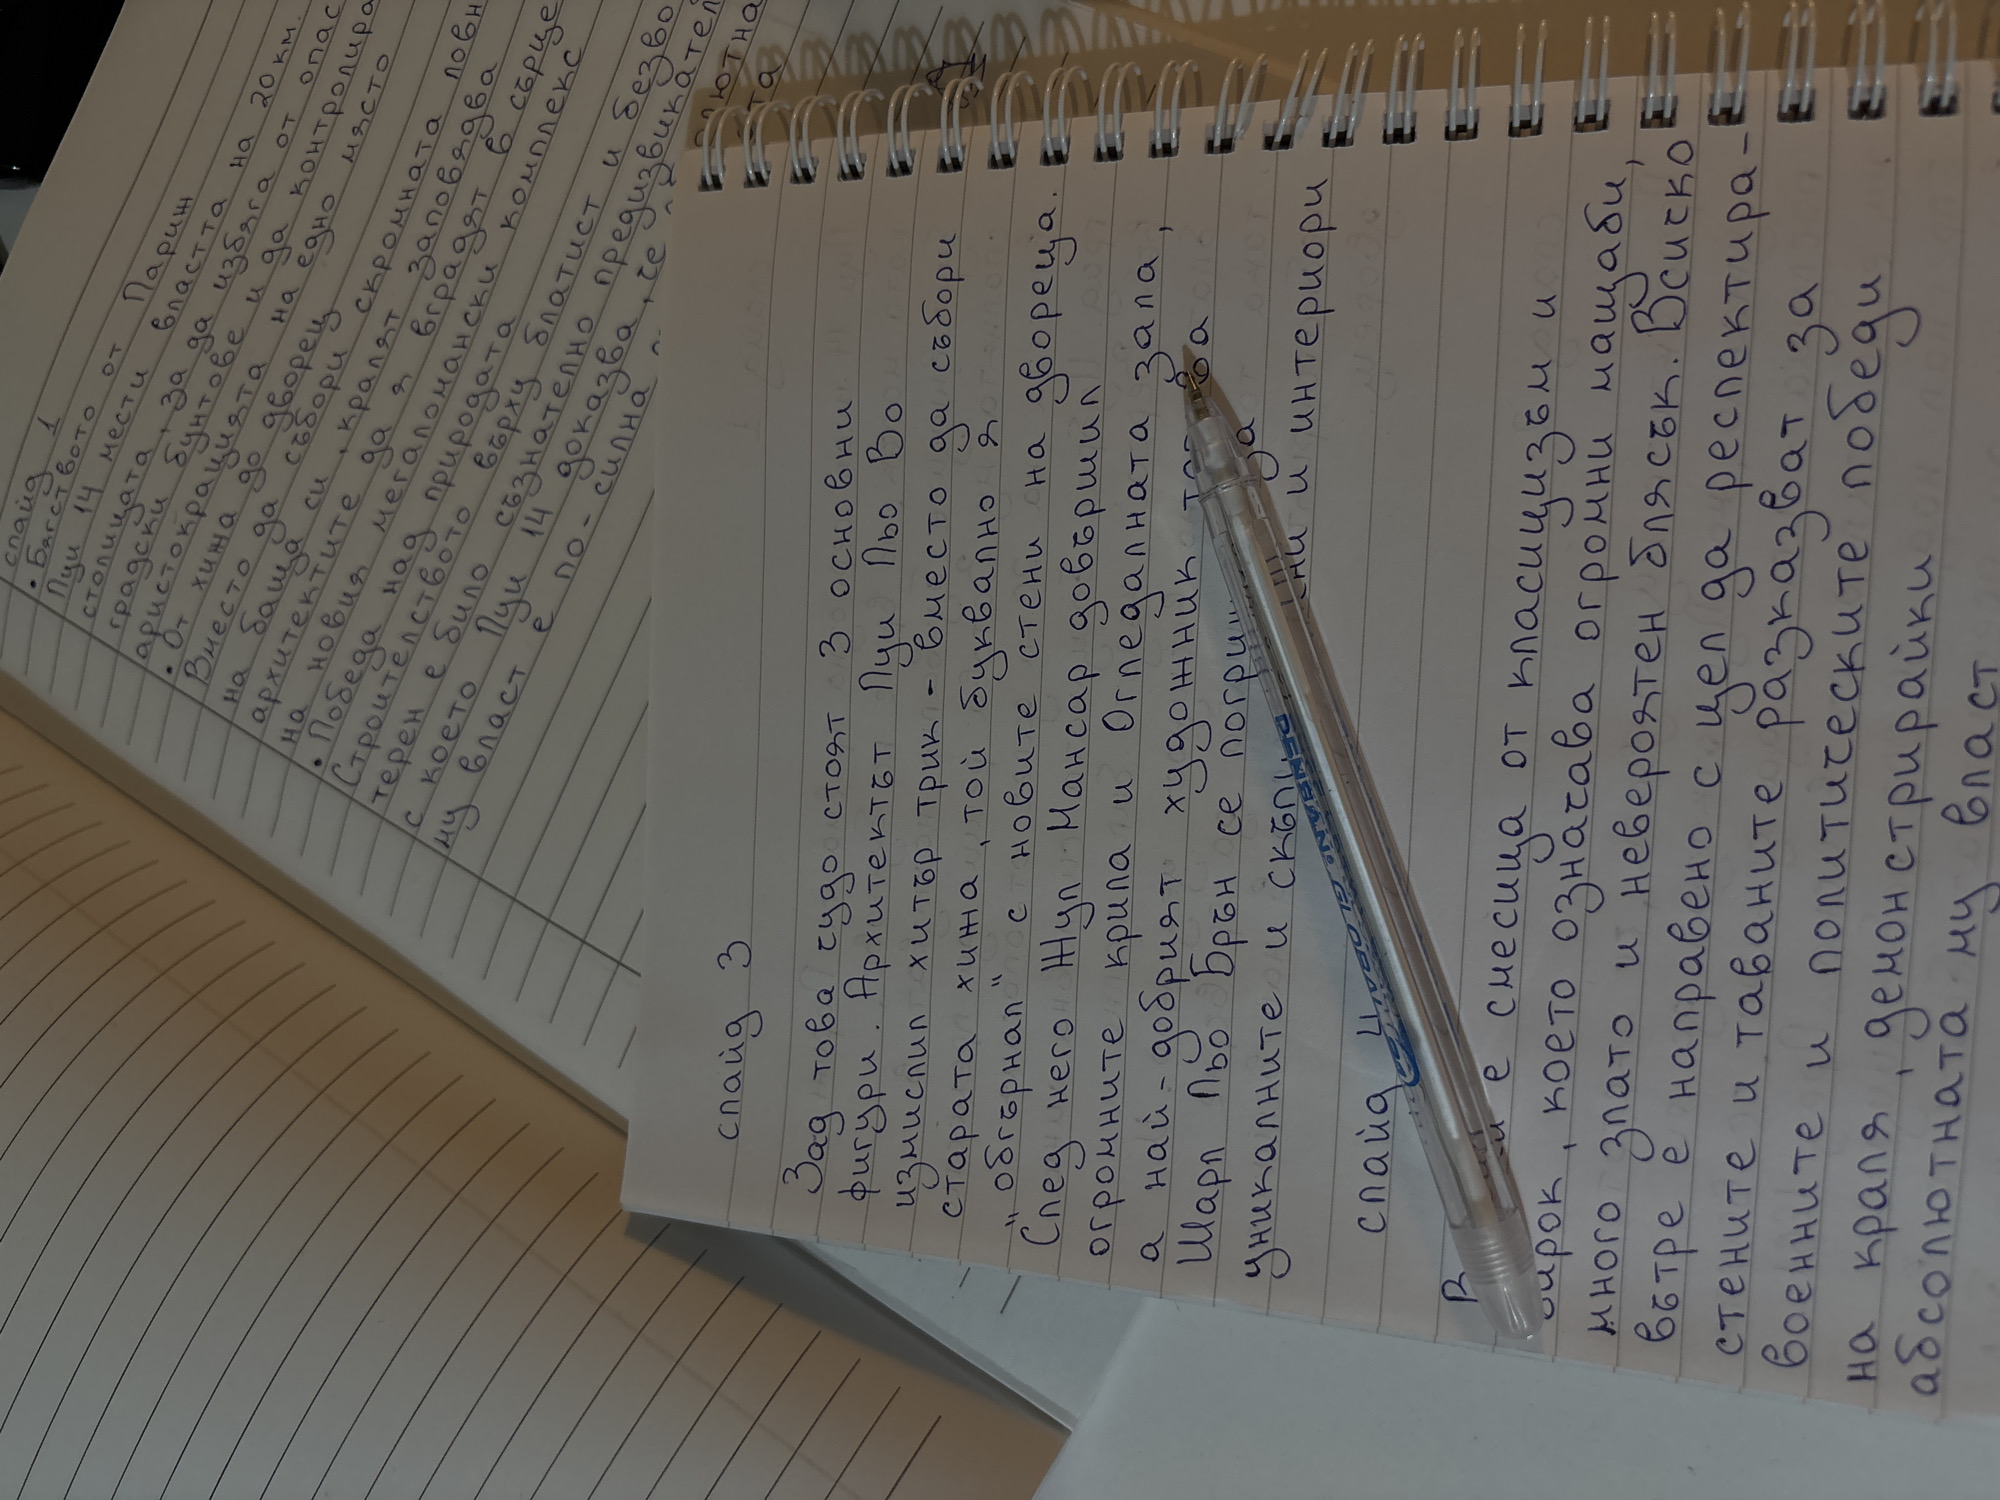 слайд 1
• Бягството от Париж
Луи 14 мести властта на 20 км.
столицата, за да избяга от опас
градски бунтове и да контролира
аристокрацията на едно място
• От хижа до дворец
Вместо да събори скромната ловн
на баща си, кралят заповядва
архитектите да я вградят в сърце
на новия мегаломански комплекс
• Победа над природата
Строителството върху блатист и безво
терен е било съзнателно предизвикател
с което Луи 14 доказва, че
му власт е по-силна
лютна
слайд 3
Зад това чудо стоят 3 основни
фигури. Архитектът Луи Льо Во
измислил хитър трик - вместо да събори
старата хижа, той буквално я
"обгърнал" с новите стени на двореца.
След него Жул Мансар довършил
огромните крила и Огледалната зала,
а най-добрият художник
Шарл Льо Брън се погри за
уникалните и скъпи и интериори
слайд 4
В е смесица от класицизъм и
барок, което означава огромни мащаби,
много злато и невероятен блясък. Всичко
вътре е направено с цел да респектира-
стените и таваните разказват за
военните и политическите победи
на краля, демонстрирайки
абсолютната му власт
PENSAN. GLOBAL